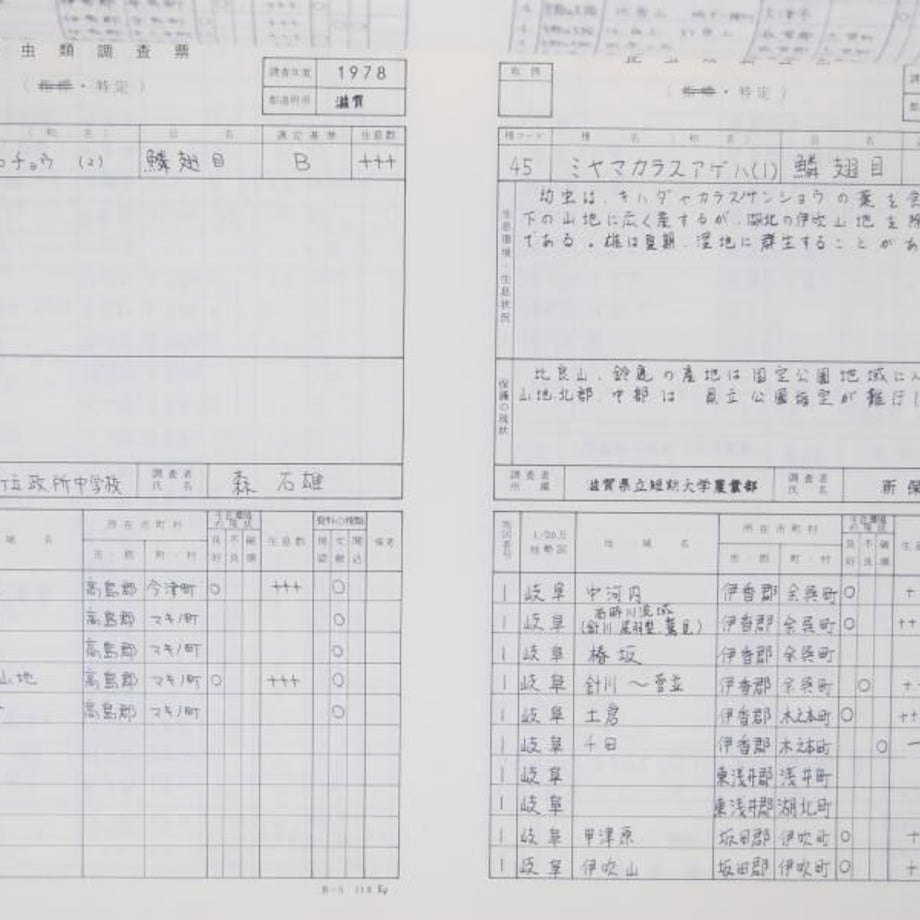 虫類調査票
(指標・特定)
調査年度 1978
都道府県 滋賀
(和名) 目名 選定基準 生息数
チョウ (2) 鱗翅目 B +++
政所中学校 調査者氏名 森 石雄
域名 所在市町村 生息環境の現状 生息数 資料の種類 備考
市・郡 町・村 良好 不良 破壊 現認 文献 聞込
高島郡 今津町 ○ +++ ○
高島郡 マキノ町 ○
高島郡 マキノ町 ○
山地 高島郡 マキノ町 ○ +++ ○
高島郡 マキノ町 ○
(指標・特定)
種コード 種名(和名) 目名
45 ミヤマカラスアゲハ(1) 鱗翅目
生息環境・生息状況
幼虫は、キハダやカラスザンショウの葉を食
下の山地に広く産するが、湖北の伊吹山地を
である。雄は夏期、湿地に群生することがあ
保護の現状
比良山、鈴鹿の産地は国定公園地域に
山地北部、中部は 県立公園指定が難行し
調査者所属 滋賀県立短期大学農業部 調査者氏名 新保
地図番号 1/20万地勢図 地域名 所在市町村 生息環境の現状
市・郡 町・村 良好 不良 破壊
1 岐阜 中河内 伊香郡 余呉町 ○ +
1 岐阜 高時川流域 (針川 尾羽梨 鷲見) 伊香郡 余呉町 ○ ++
1 岐阜 椿坂 伊香郡 余呉町
1 岐阜 針川〜菅並 伊香郡 余呉町 ○ +
1 岐阜 土倉 伊香郡 木之本町 ○ ++
1 岐阜 千田 伊香郡 木之本町 ○ −
1 岐阜 東浅井郡 浅井町
1 岐阜 東浅井郡 湖北町
1 岐阜 甲津原 坂田郡 伊吹町 ○ +
1 岐阜 伊吹山 坂田郡 伊吹町 ○ +